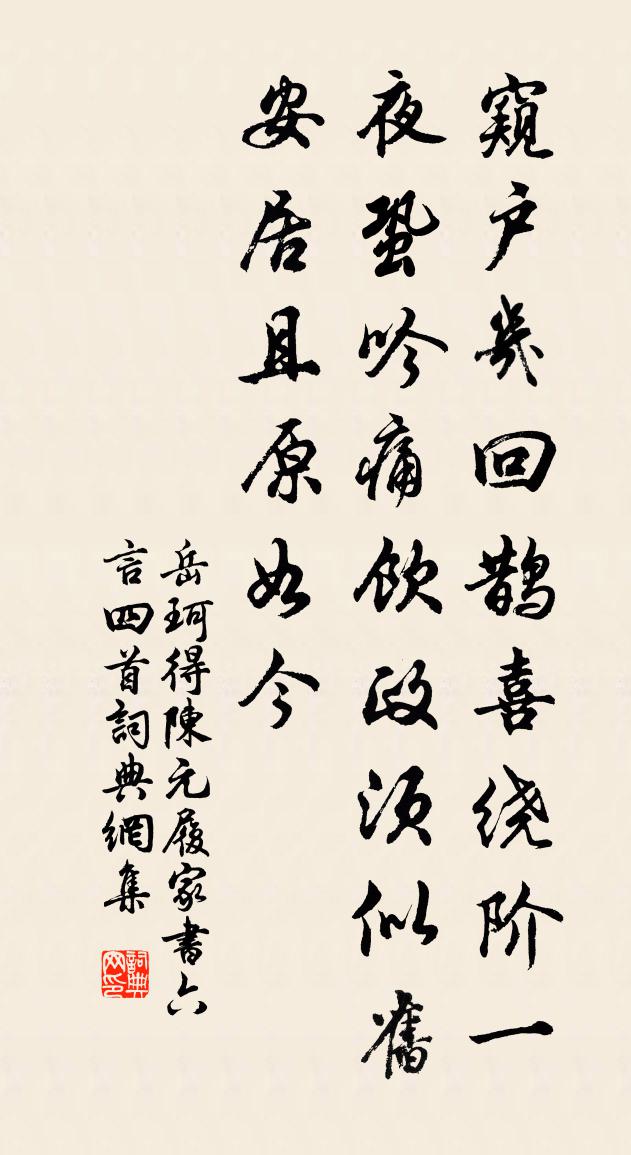 窺户幾回鹊喜绕阶一
夜蛩吟痛飲政须似舊
安居且原如今
岳珂得陳元履家書六
言四首詞典網集
詞典网印